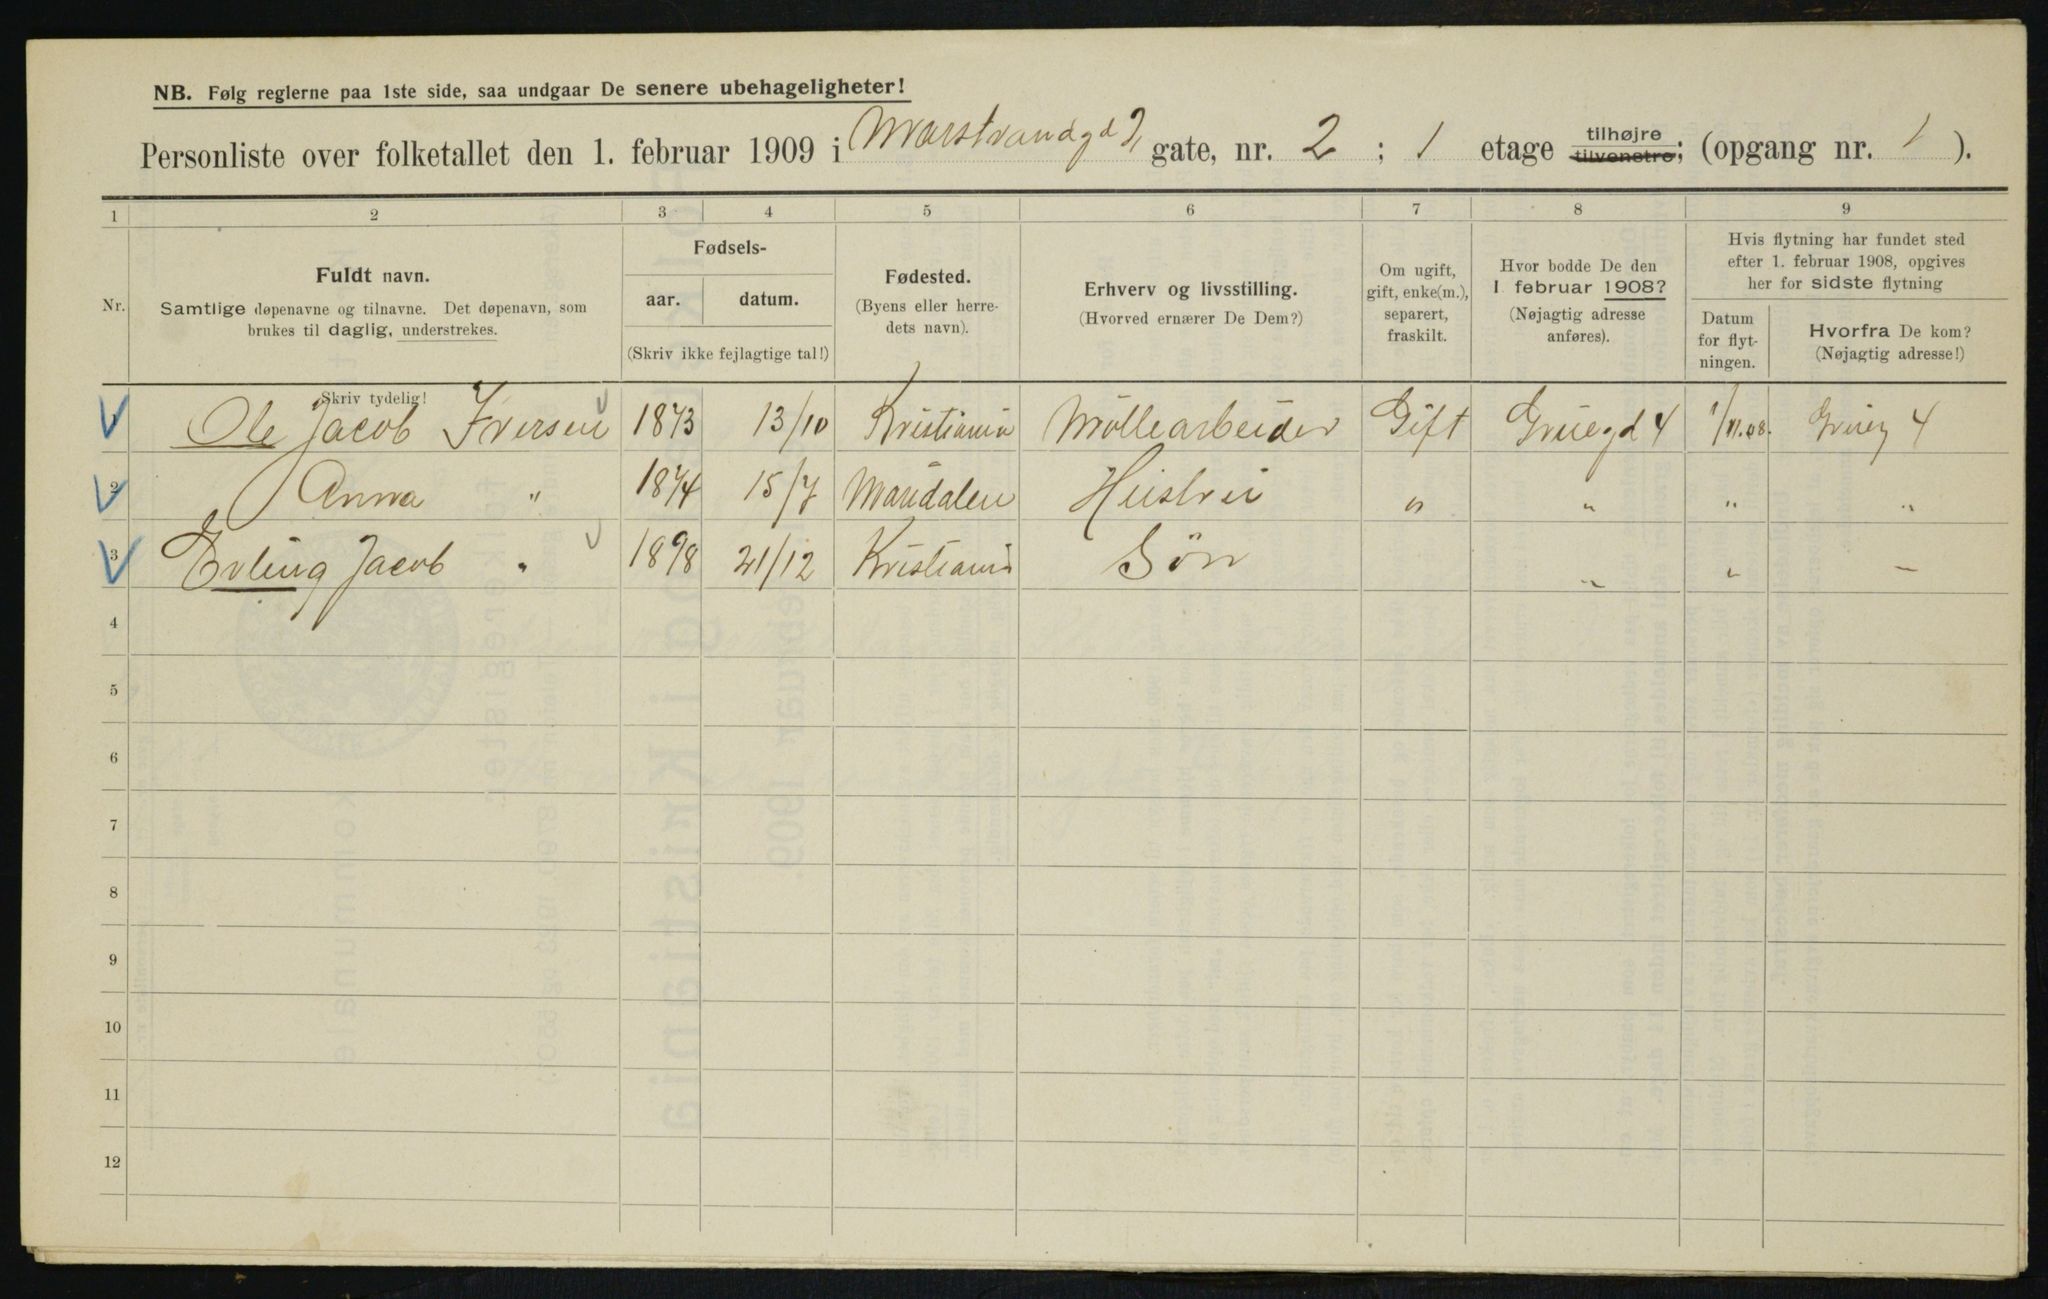 NB. Følg reglerne paa 1ste side, saa undgaar De senere ubehageligheter!
Personliste over folketallet den 1. februar 1909 i Marstrandgd 2, gate, nr. 2 ; 1 etage tilhøjre tilvenstre; (opgang nr. 1 ).
1 2 3 4 5 6 7 8 9
Nr.
Fuldt navn.
Samtlige døpenavne og tilnavne. Det døpenavn, som
brukes til daglig, understrekes.
Fødsels-
aar. datum.
(Skriv ikke fejlagtige tal!)
Fødested.
(Byens eller herre-
dets navn).
Erhverv og livsstilling.
(Hvorved ernærer De Dem?)
Om ugift,
gift, enke(m.),
separert,
fraskilt.
Hvor bodde De den
1 februar 1908?
(Nøjagtig adresse
anføres).
Hvis flytning har fundet sted
efter 1. februar 1908, opgives
her for sidste flytning
Datum
for flyt-
ningen.
Hvorfra De kom?
(Nøjagtig adresse!)
Skriv tydelig!
1 Ole Jacob Iversen 1873 13/10 Kristiania Möllearbeider Gift Gruegd 4 1/11.08. Grueg 4
2 Anna " 1874 15/7 Mandalen Hustru " " " "
3 Erling Jacob " 1898 21/12 Kristiania Sön " " "
4
5
6
7
8
9
10
11
12